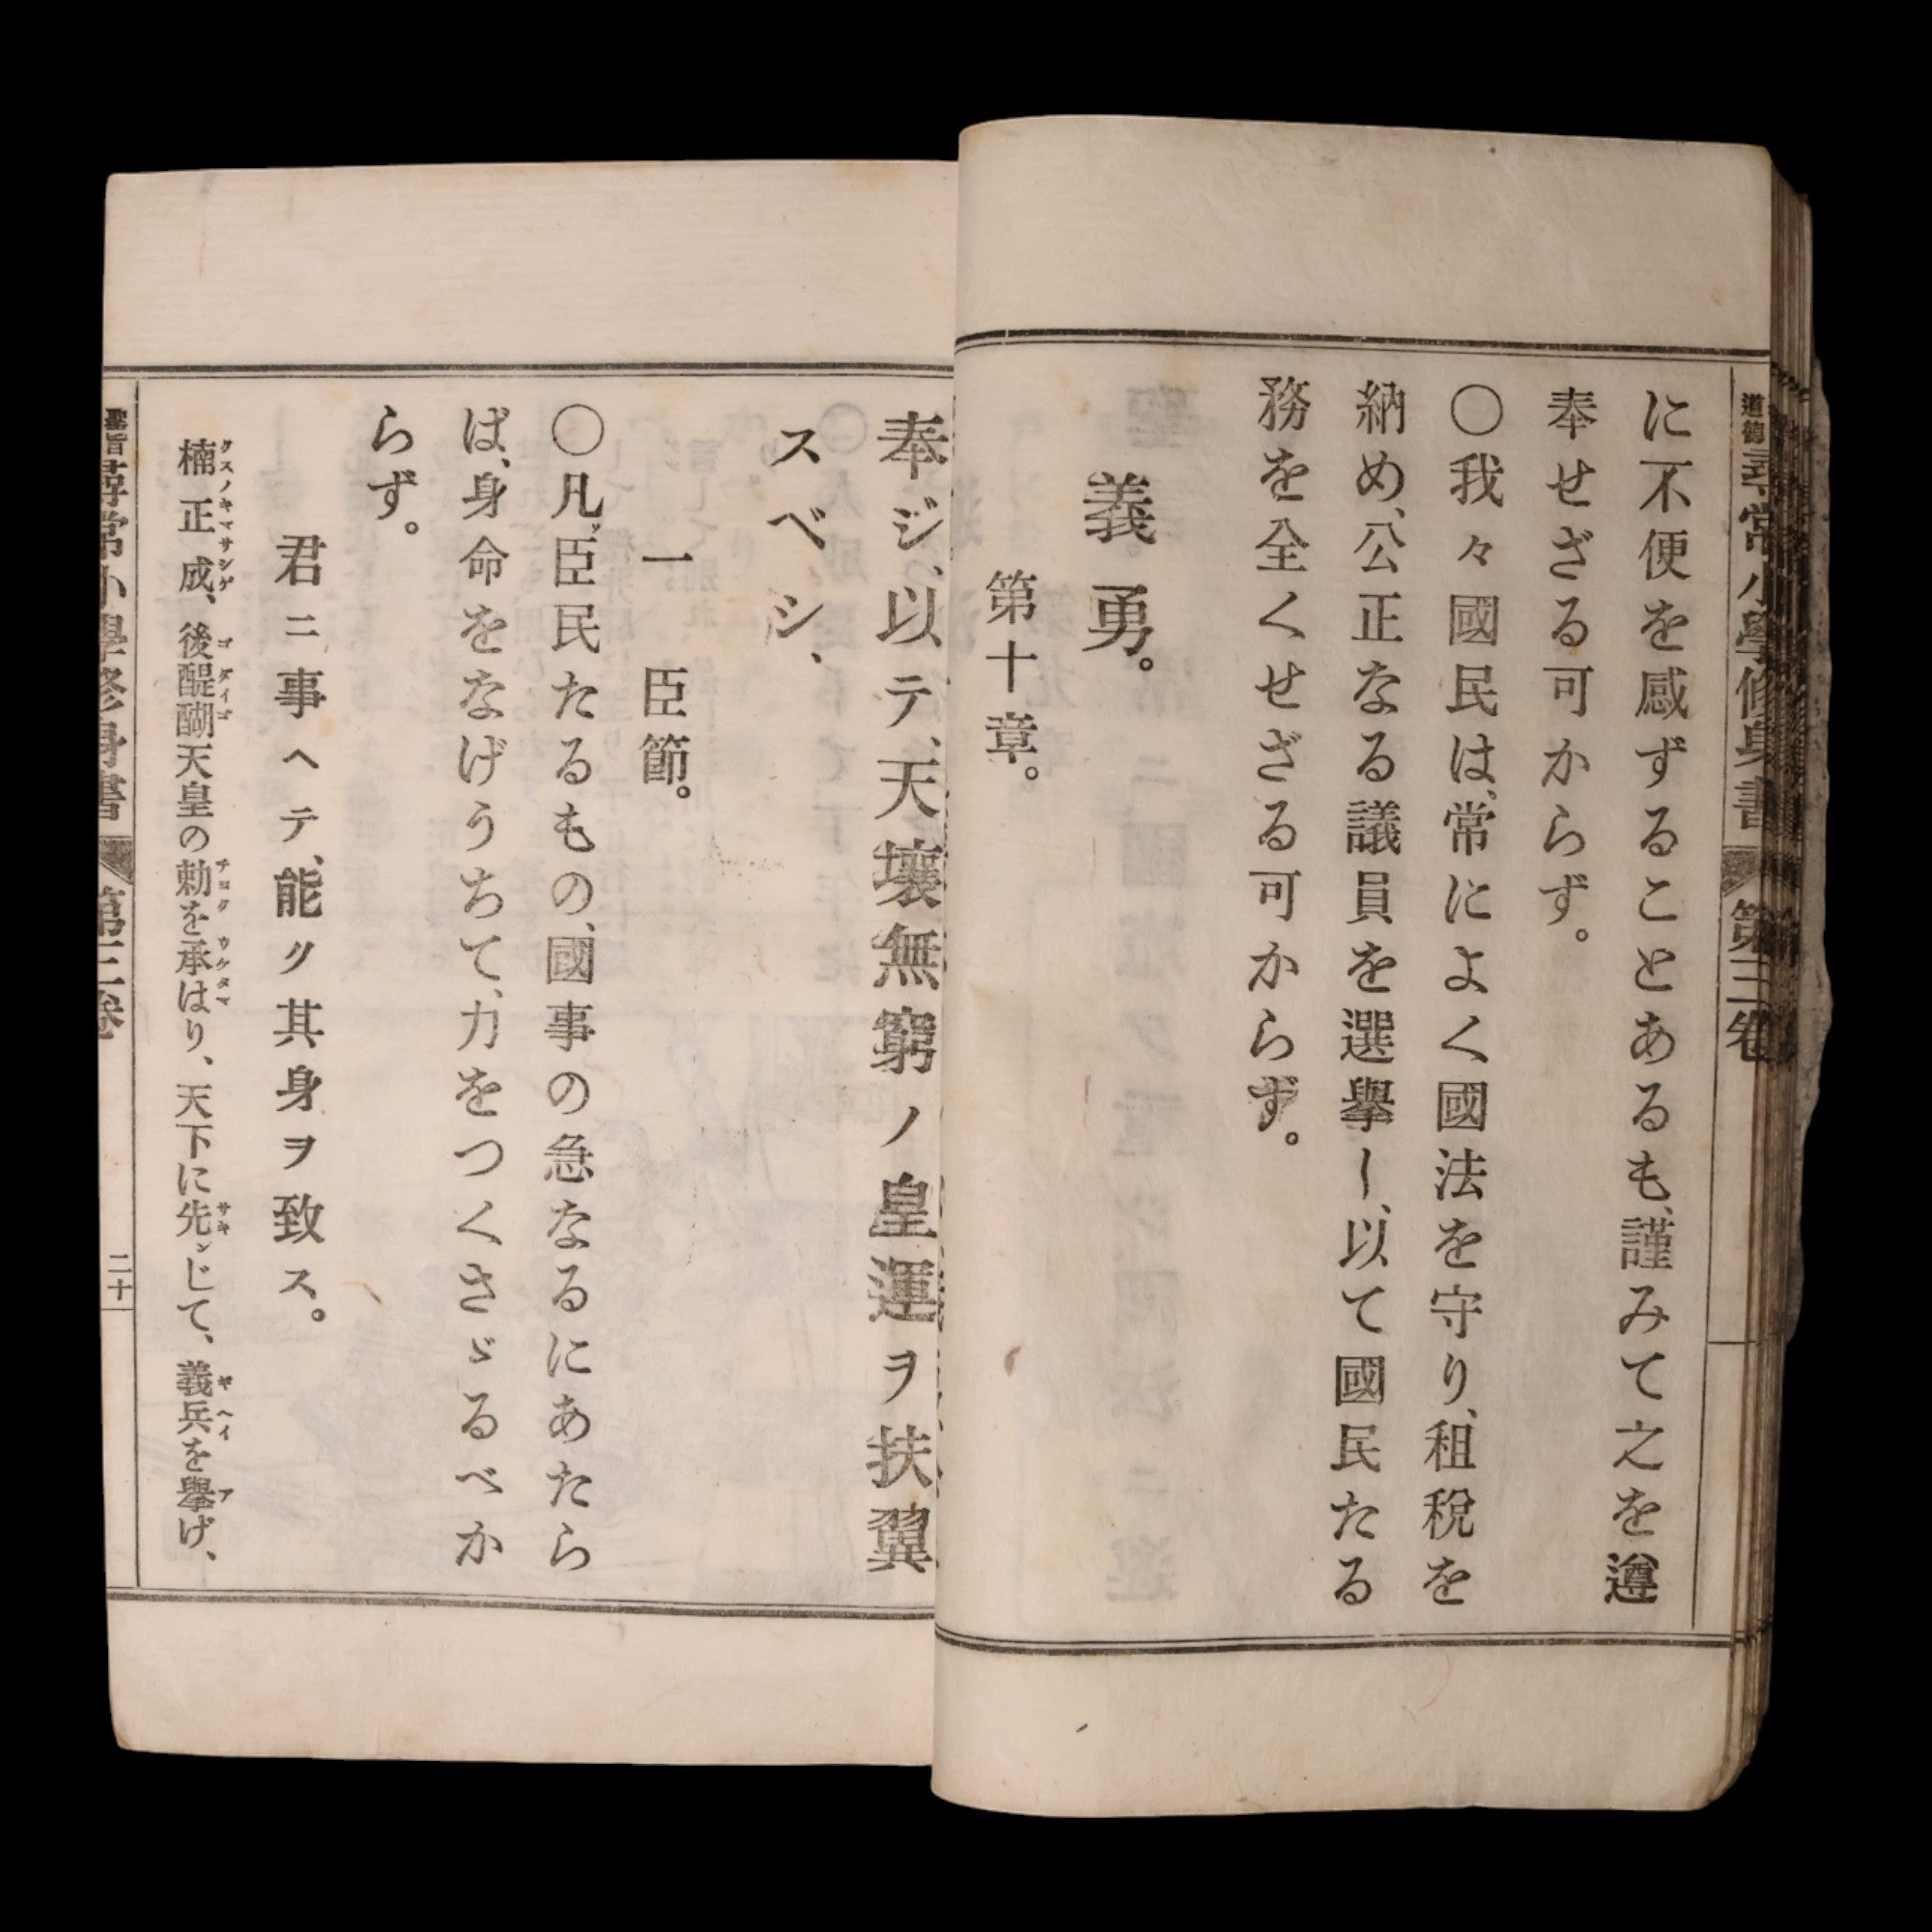 道徳
尋常小學修身書 第三卷
に不便を感ずることあるも、謹みて之を遵
奉せざる可からず。
〇我々國民は、常によく國法を守り、租税を
納め、公正なる議員を選擧し、以て國民たる
務を全くせざる可からず。
義勇。
第十章。
奉ジ、以テ、天壤無窮ノ皇運ヲ扶翼
スベシ、
一 臣節。
〇凡、臣民たるもの、國事の急なるにあたら
ば、身命をなげうちて、力をつくさゞるべか
らず。
君ニ事ヘテ、能ク其身ヲ致ス。
楠正成、後醍醐天皇の勅を承はり、天下に先ンじて、義兵を擧げ、
尋常小學修身書 第三卷 二十